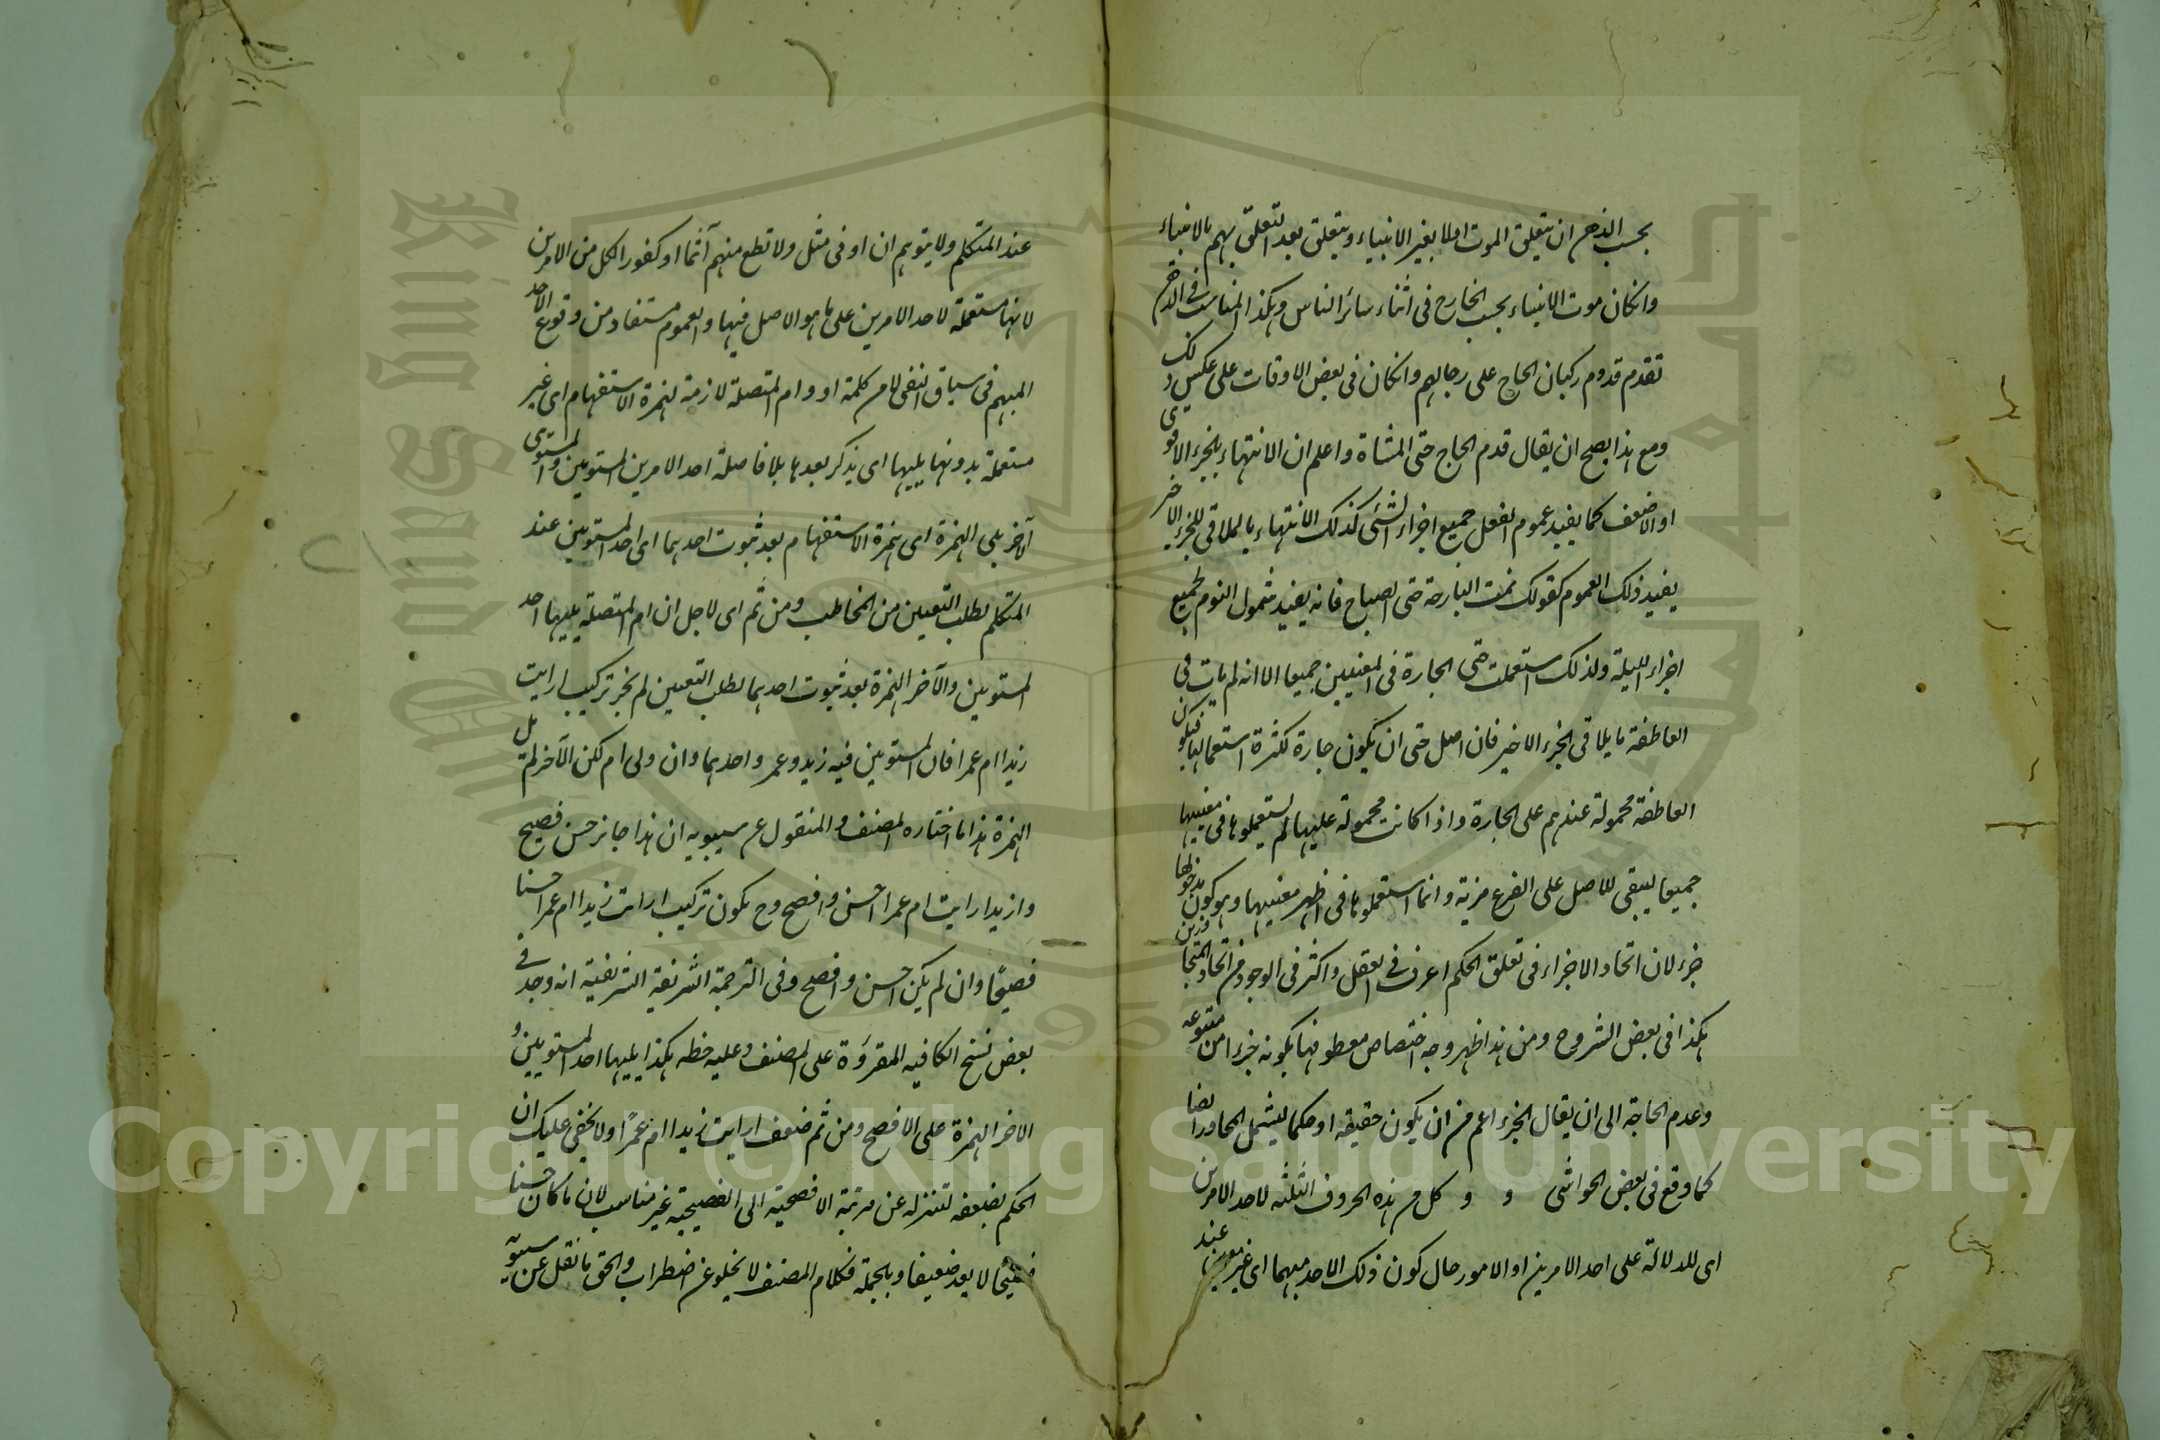 بحسب الذهن ان يتعلق الموت اولا بغير الانبياء ويتعلق بعد التعلق بهم بالانبياء
وانكان موت الانبياء بحسب الخارج في اثناء سائر الناس وهكذا المناسب في الذهن
تقدم قدوم ركبان الحاج على رجالهم وانكان في بعض الاوقات على عكس ذلك
ومع هذا يصح ان يقال قدم الحاج حتى المشاة واعلم ان الانتهاء بالجزء الاقوى
او الاضعف كما يفيد عموم الفعل جميع اجزاء الشئ كذلك الانتهاء بالملاقى للجزء الاخير
يفيد ذلك العموم كقولك نمت البارحة حتى الصباح فانه يفيد شمول النوم لجميع
اجزاء الليلة ولذلك استعملت حتى الجارة في المعنيين جميعا الا انه لم يات في
العاطفة ما يلاقى الجزء الاخير فان اصل حتى ان يكون جارة لكثرة استعمالها فيكون
العاطفة محمولة عندهم على الجارة واذا كانت محمولة عليها لم يستعملوها في معنييها
جميعا ليبقى للاصل على الفرع مزية وانما استعملوها في اظهر معنييها وهو كون مدخولها
جزء لان اتحاد الاجزاء في تعلق الحكم اعرف في العقل واكثر في الوجود من اتحاد المتجاورين
هكذا في بعض الشروح ومن هذا ظهر وجه اختصاص معطوفها بكونه جزءا من متبوعه
وعدم الحاجة الى ان يقال الجزء اعم من ان يكون حقيقة او حكما ليشمل المجاور ايضا
كما وقع في بعض الحواشى و و كل من هذه الحروف الثلثه لاحد الامرين
اى للدلالة على احد الامرين او الامور حال كون ذلك الاحد مبهما اى غير معين عند
عند المتكلم ولا يتوهم ان او في مثل ولا تطع منهم آثما او كفورا لكل من الامرين
لانها مستعملة لاحد الامرين على ما هو الاصل فيها والعموم مستفاد من وقوع الاحد
المبهم في سياق النفى لا من كلمة او وام المتصلة لازمة لهمزة الاستفهام اى غير
مستعملة بدونها يليها اى يذكر بعدها بلا فاصلة احد الامرين المستويين والمستوى
الآخر يلى الهمزة اى همزة الاستفهام بعد ثبوت احدهما اى احد المستويين عند
المتكلم لطلب التعيين من المخاطب ومن ثم اى لاجل ان ام المتصلة يليها احد
المستويين والآخر الهمزة بعد ثبوت احدهما لطلب التعيين لم يجز تركيب ارايت
زيدا ام عمرا فان المستويين فيه زيد وعمرو احدهما وان ولى ام لكن الآخر لم يل
الهمزة هذا ما اختاره المصنف والمنقول عن سيبويه ان هذا جائز حسن فصيح
وازيدا رايت ام عمرا احسن وافصح وح يكون تركيب ارايت زيدا ام عمرا حسنا
فصيحا وان لم يكن احسن وافصح وفي الترجمة الشريفة الشريفية انه وجد في
بعض نسخ الكافيه المقروءة على المصنف وعليه خطه هكذا يليها احد المستويين و
الاخر الهمزة على الافصح ومن ثم ضعف ارايت زيدا ام عمرا ولا يخفى عليك ان
الحكم بضعفه لتنزله عن مرتبة الافصحية الى الفصيحية غير مناسب لان ما كان حسنا
فصيحا لا يعد ضعيفا وبالجملة فكلام المصنف لا يخلو عن اضطراب والحق ما نقل عن سيبويه
Copyright © King Saud University
King Saud University
1957